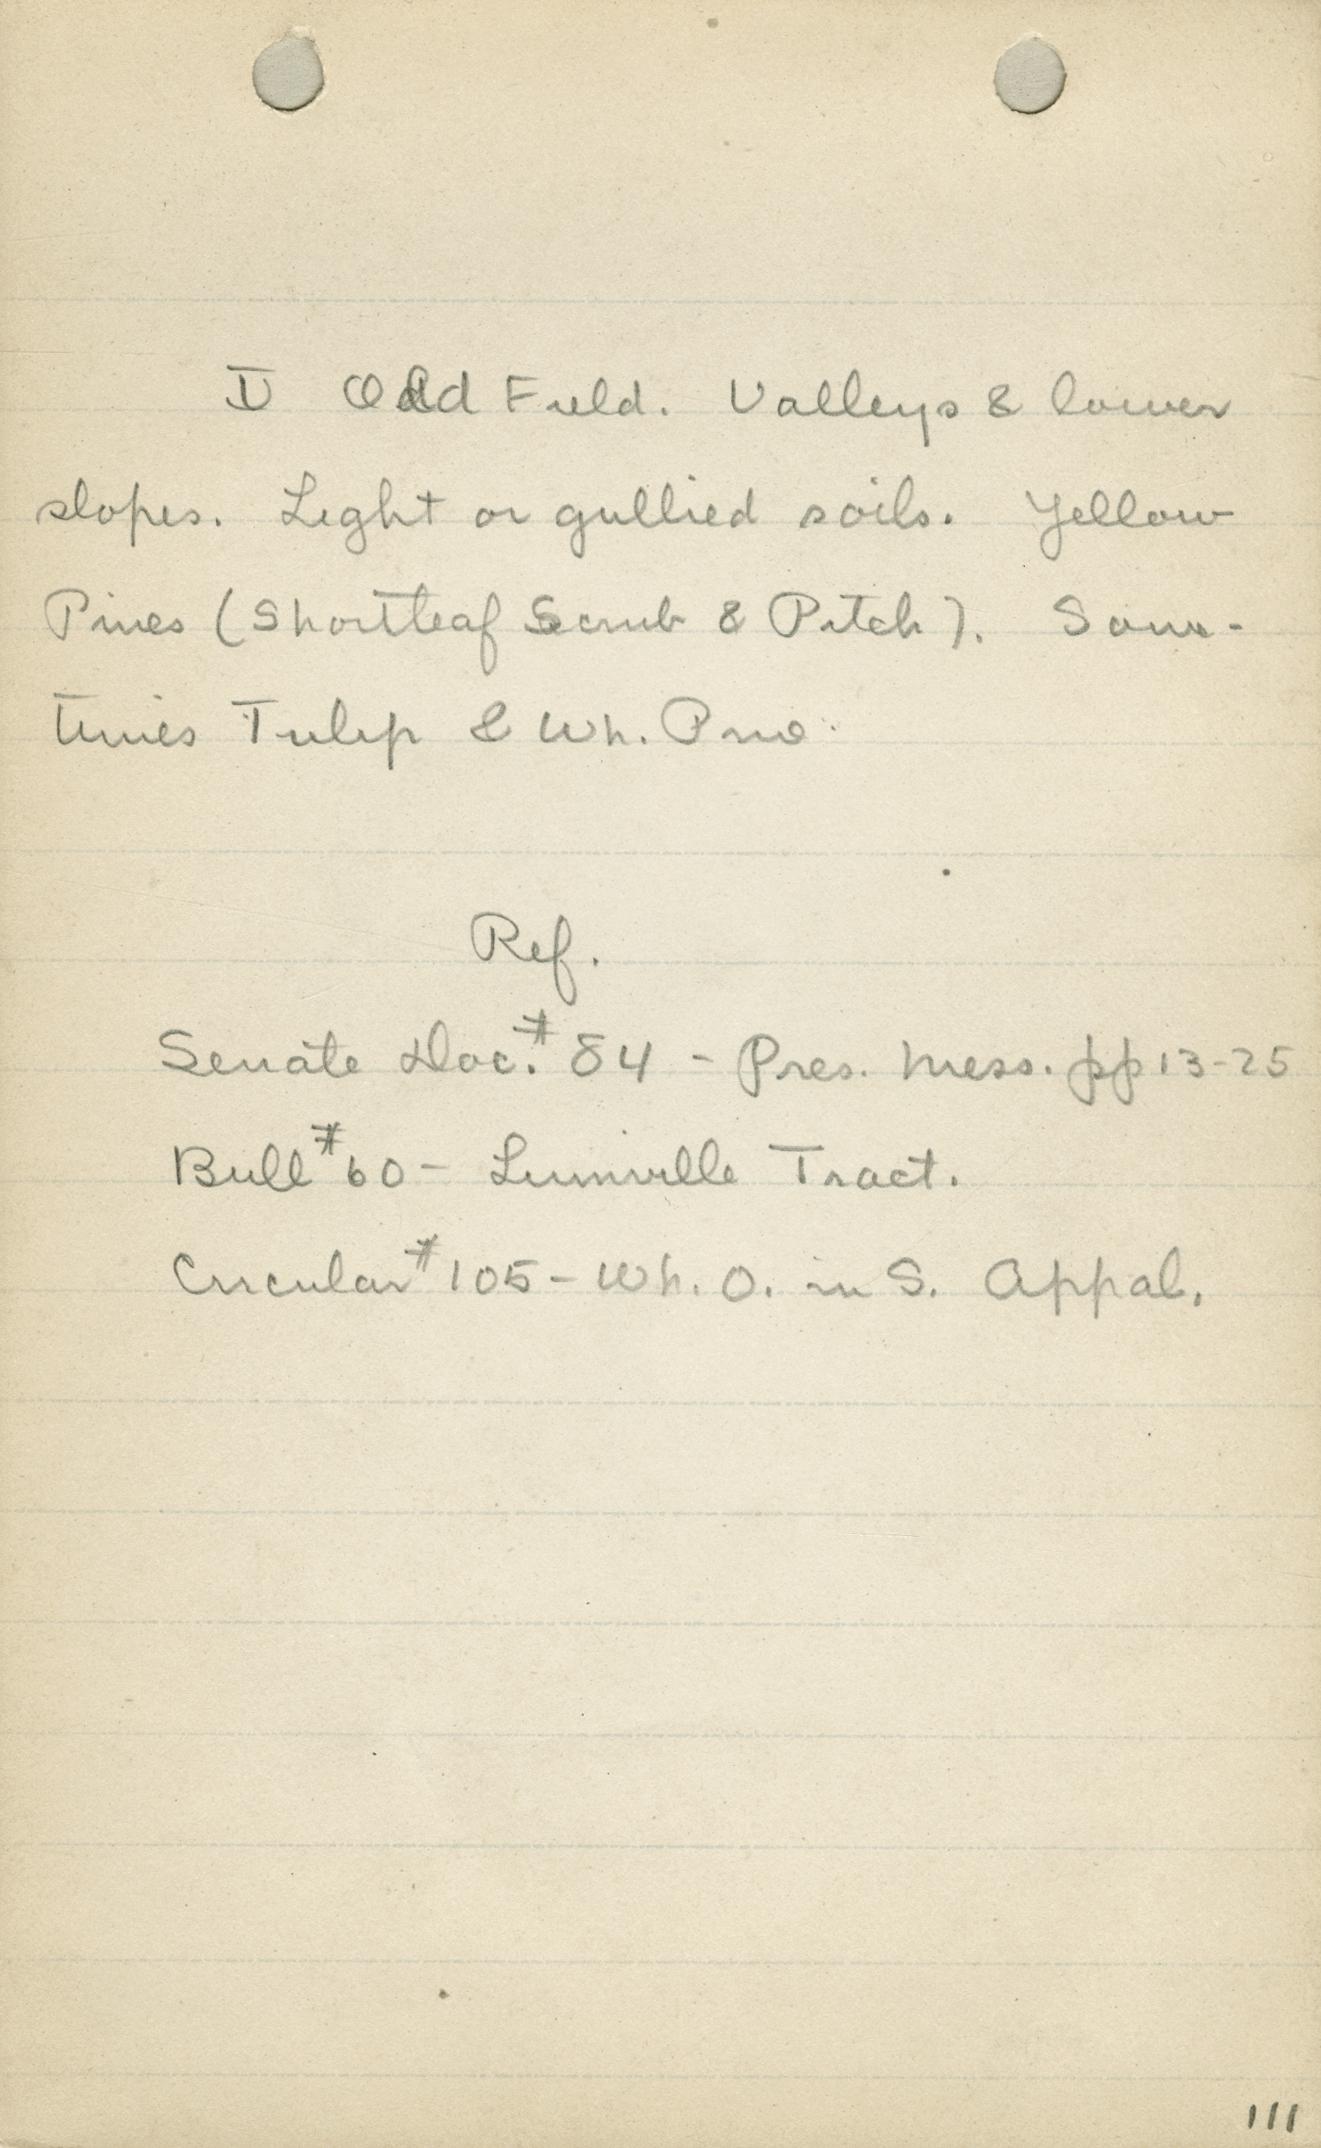 V Old Field. Valleys & lower
slopes. Light or gullied soils. Yellow
Pines (Shortleaf Scrub & Pitch). Some-
times Tulip & Wh. Pine.
Ref.
Senate Doc. # 84 - Pres. Mess. pp 13-25
Bull # 60 - Linnville Tract.
Circular # 105 - Wh. O. in S. Appal.
111